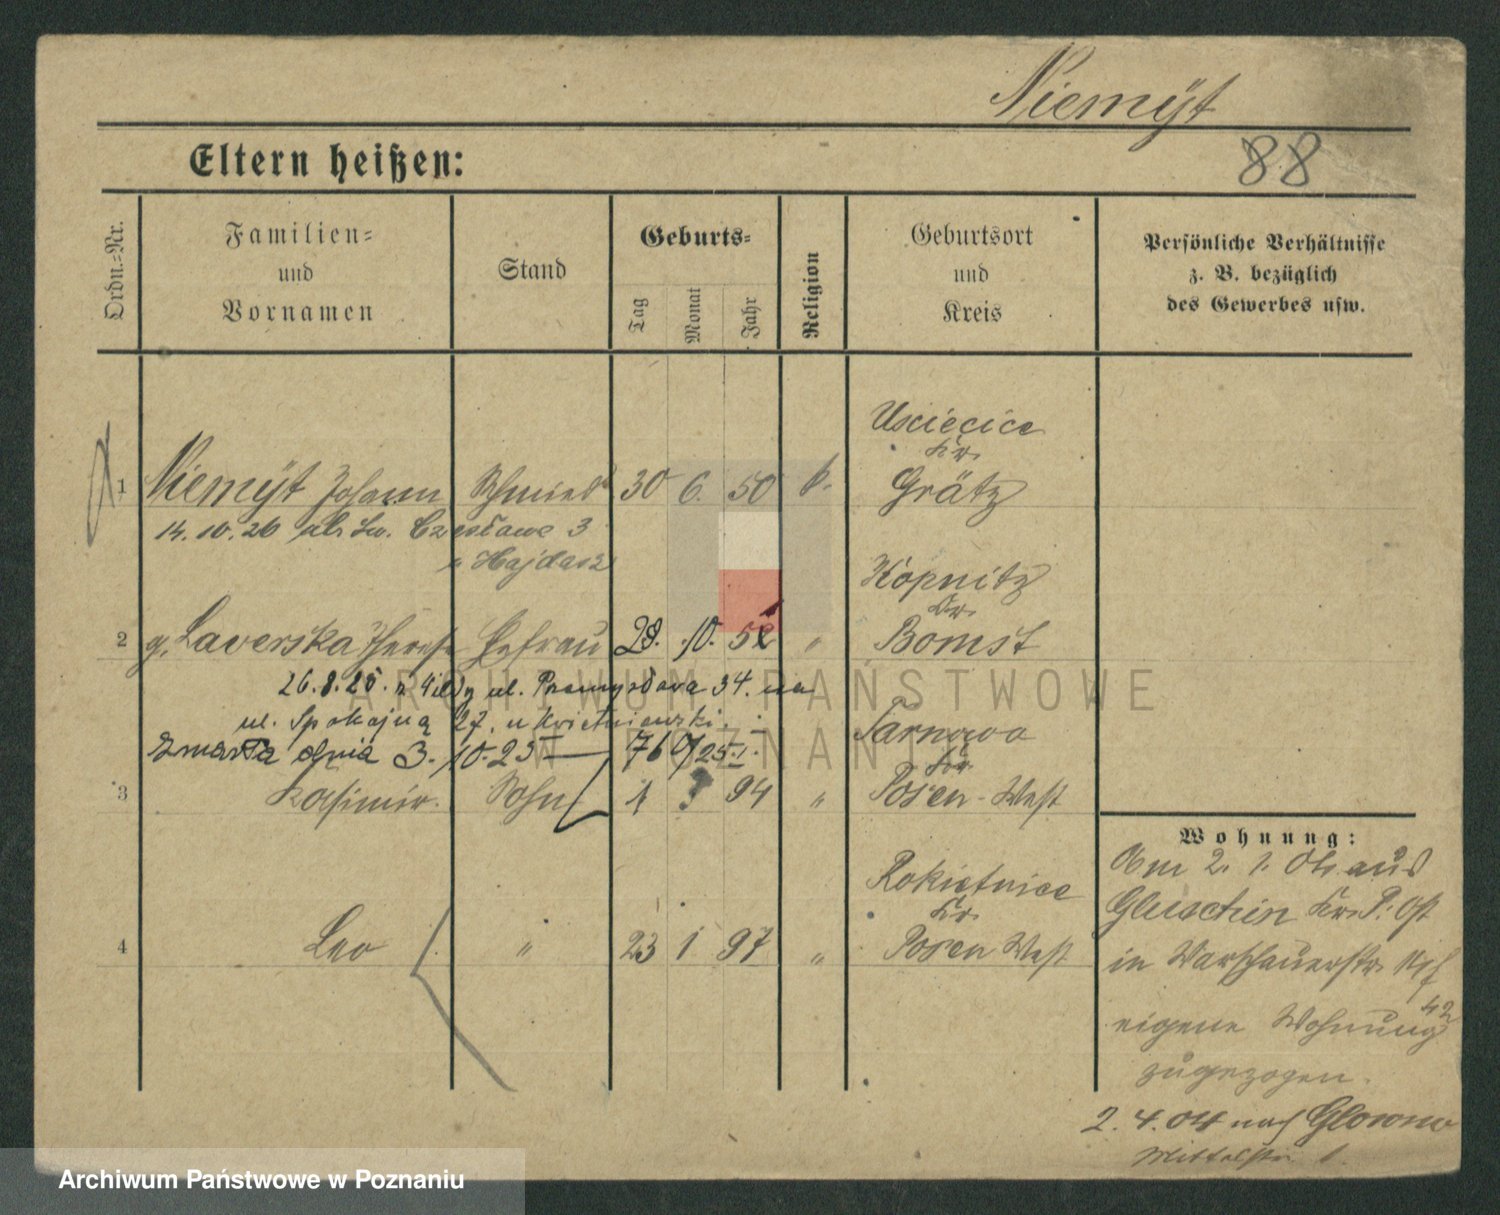 Niemÿt
88
Eltern heißen:
Ordn.-Nr.
Familien-
und
Vornamen
Stand
Geburts-
Tag
Monat
Jahr
Religion
Geburtsort
und
Kreis
Persönliche Verhältnisse
z. B. bezüglich
des Gewerbes usw.
Usciecice
Kr.
1 Niemÿt Johann Schmied 30 6. 50 k. Grätz
14. 10. 26 ul. Św. Czesława 3
u Hajdasz
Kopnitz
Kr.
2 g. Laverska Therese Ehefrau 28. 10. 52 " Bomst
26.8.25. z ul. Przemysłowa 34. na
ul. Spokojną 27. u Kwietniewski.
Zmarła dnia 3. 10. 25 — 76
Tarnowo
Kr.
3 Kasimir. Sohn 1 3 94 " Posen-West
Rokietnice
Kr.
4 Leo " 23 1 97 " Posen West
Wohnung:
Am 2. 1. 04 aus
Gluschin Kr. P. Ost
in Warschauerstr.
42
eigene Wohnung
zugezogen.
2. 4. 04 nach Glowno
Mittelstr. 1.
ARCHIWUM PAŃSTWOWE
W POZNANIU
Archiwum Państwowe w Poznaniu